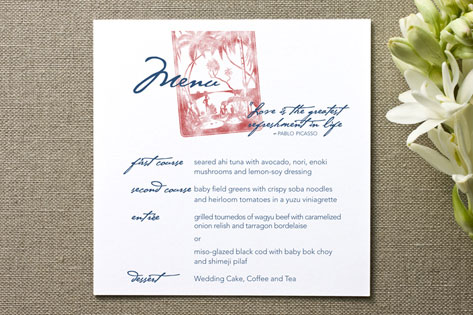 Menu
Love is the greatest
refreshment in life
– PABLO PICASSO
first course
seared ahi tuna with avocado, nori, enoki
mushrooms and lemon-soy dressing
second course
baby field greens with crispy soba noodles
and heirloom tomatoes in a yuzu viniagrette
entrée
grilled tournedos of wagyu beef with caramelized
onion relish and tarragon bordelaise
or
miso-glazed black cod with baby bok choy
and shimeji pilaf
dessert
Wedding Cake, Coffee and Tea